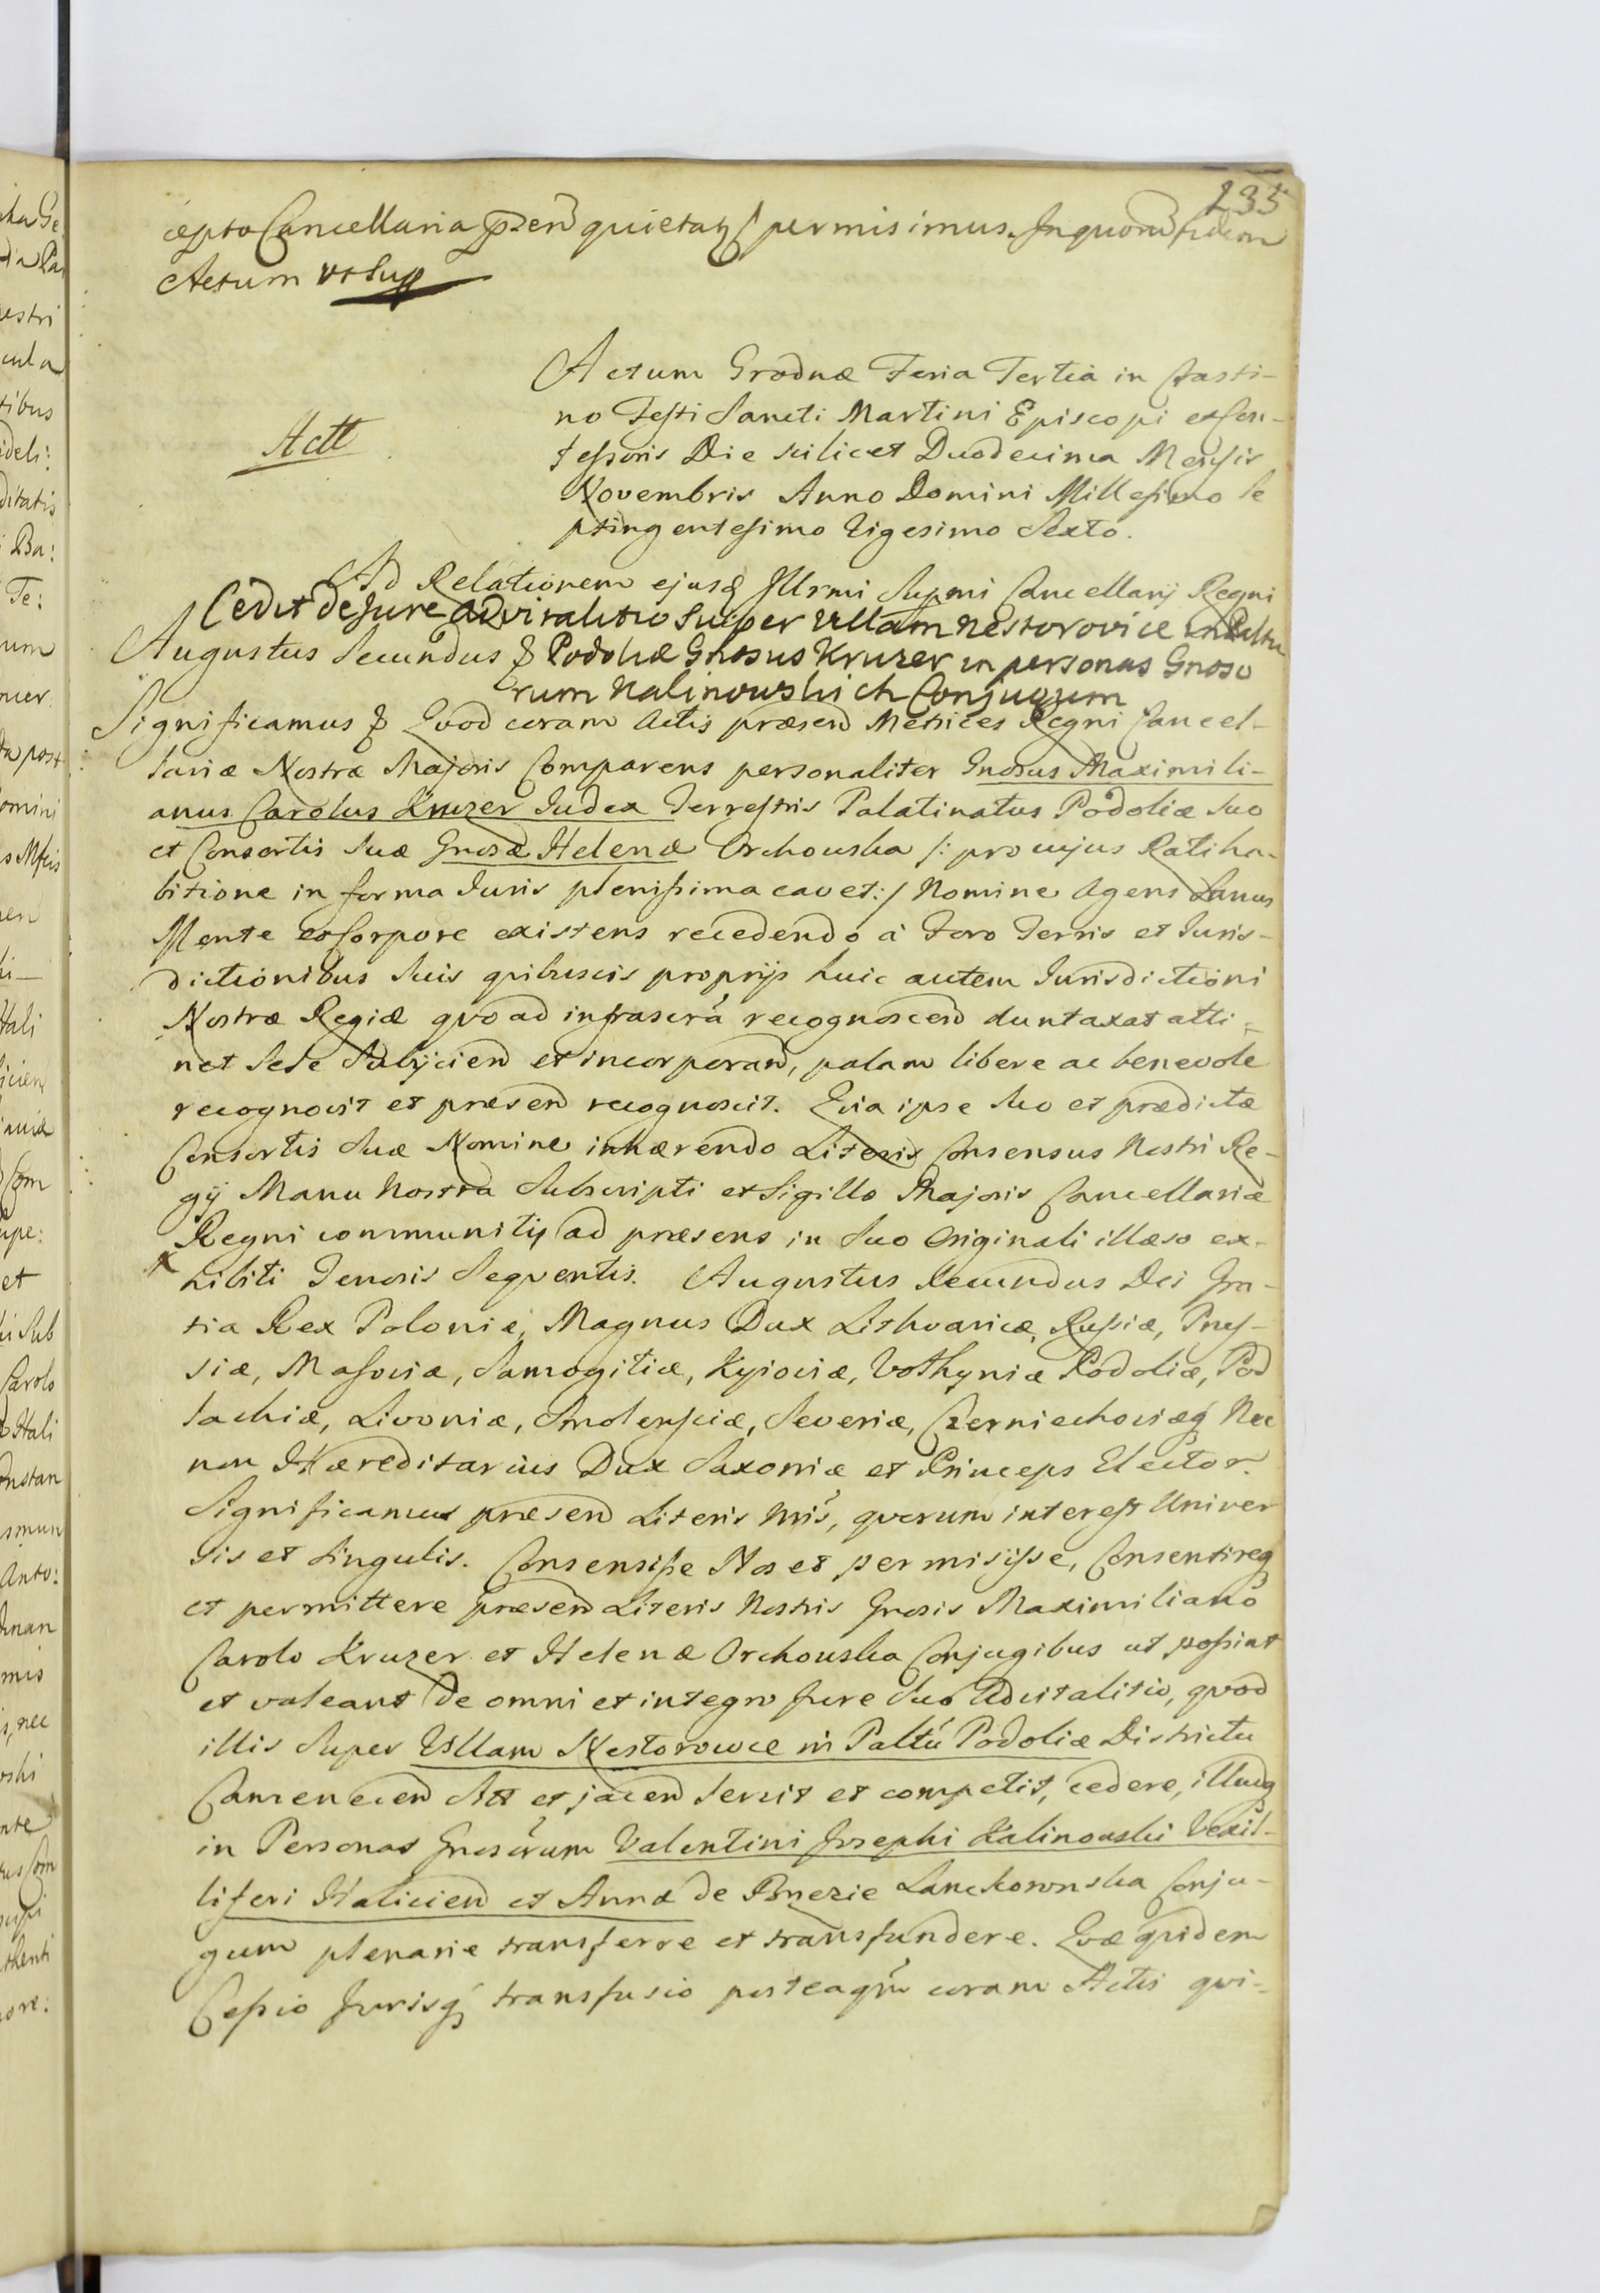 235
cepto Cancellaria pzen quietatq permisimus. In quorū fidem
Actum ut Sup
Actum Grodnæ Feria Tertia in Crasti-
no Festi Sancti Martini Episcopi et Con-
fessoris Die scilicet Duodecima Mensis
Novembris Anno Domini Millesimo Se
ptingentesimo Vigesimo Sexto.
Actt
Ad Relationem ejusd Illrmi Supmi Cancellarij Regni
Cedit de Jure advitalitio super Villam Nestorovice in Paltu
Augustus Secundus & Podoliæ Gnosus Kruzer in personas Gnoso
rum Kalinowskich Conjugum
Significamus & Quod coram Actis præsen Metrices Regni Cancel-
lariæ Nostræ Majoris Comparens personaliter Gnosus Maximili-
anus Carolus Kruzer Judex Terrestris Palatinatus Podoliæ suo
et Consortis suæ Gnosæ Helenæ Orchowska /: pro cujus Ratiha-
bitione in forma Juris plenissima cavet :/ Nomine Agens Sanus
Mente et Corpore existens recedendo à Foro Terris et Juris-
dictionibus suis quibusvis proprijs huic autem Jurisdictioni
Nostræ Regiæ quo ad infrascrā recognoscen duntaxat atti-
net sese subijcien et incorporan, palam libere ac benevole
recognovit et præsen recognoscit. Quia ipse suo et prædictæ
Consortis suæ Nomine inhærendo Literis Consensus Nostri Re-
gij Manu Nostra Subscripti et Sigillo Majoris Cancellariæ
Regni communitij ad præsens in suo Originali illæso ex-
hibiti Tenoris Sequentis. Augustus Secundus Dei Gra-
tia Rex Poloniæ, Magnus Dux Lithvaniæ, Russiæ, Prus-
siæ, Masoviæ, Samogitiæ, Kyioviæ, Volhyniæ Podoliæ, Pod
lachiæ, Livoniæ, Smolensciæ, Severiæ, Czerniechoviæq Nec
non Hæreditarius Dux Saxoniæ et Princeps Elector.
Significamus præsen Literis Nris, quorum interest Univer
sis et singulis. Consensisse Nos et permisisse, Consentireq
et permittere præsen Literis Nostris Gnosis Maximiliano
Carolo Kruzer et Helenæ Orchowska Conjugibus ut possint
et valeant de omni et integro Jure suo Advitalitio, quod
illis super Villam Nestorowce in Paltū Podoliæ Districtu
Camenecen Sitt et jacen servit et competit, cedere, illudq
in Personas Gnosorum Valentini Josephi Kalinowski Vexil-
liferi Halicien et Annæ de Brzezie Lanckoronska Conju-
gum plenarie transferre et transfundere. Quæ quidem
Cessio Jurisq transfusio posteaqm coram Actis qui-